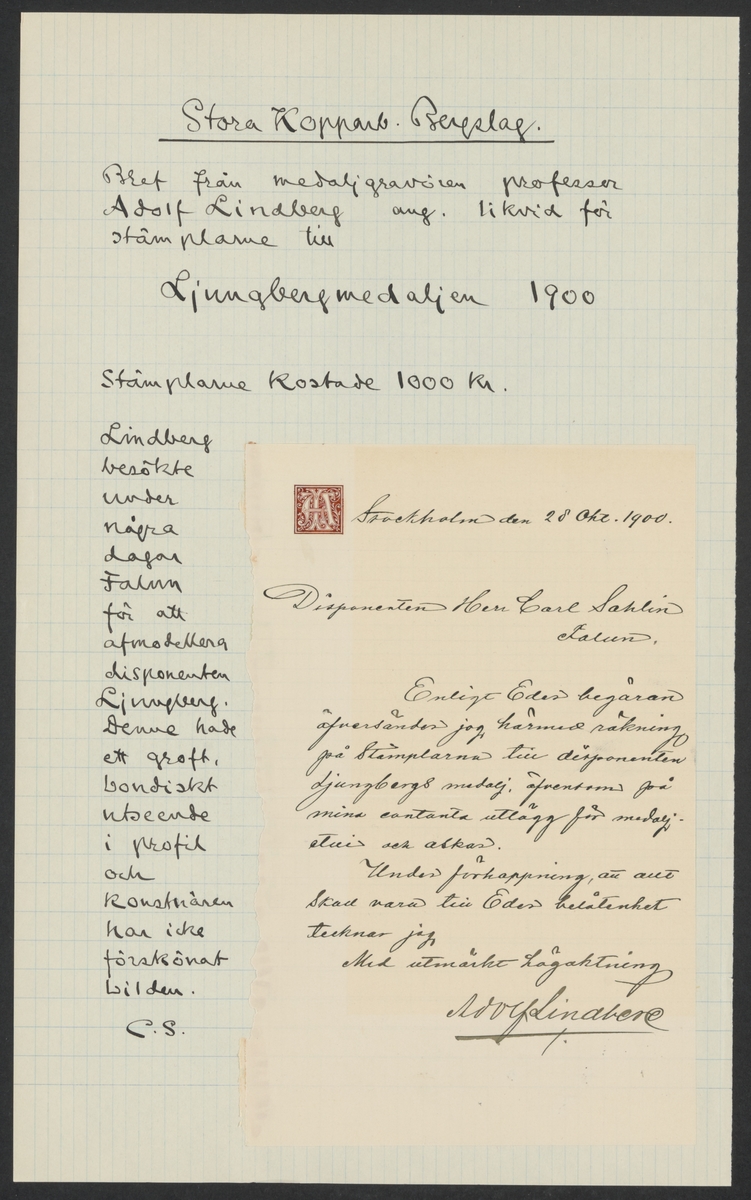 Stora Kopparb. Bergslag.
Bref från medaljgravören professor
Adolf Lindberg ang. likvid för
stämplarne till
Ljungbergmedaljen 1900
Stämplarne kostade 1000 kr.
Lindberg
besökte
under
några
dagar
Falun
för att
afmodellera
disponenten
Ljungberg.
Denne hade
ett groft,
bondiskt
utseende
i profil
och
konstnären
har icke
förskönat
bilden.
C.S.
Stockholm den 28 Okt. 1900.
Disponenten Herr Carl Sahlin
Falun.
Enligt Eder begäran
öfversänder jag härmed räkning
på Stämplarna till disponenten
Ljungbergs medalj, äfvensom på
mina contanta utlägg för medalj-
etui och askar.
Under förhoppning, att allt
skall vara till Eder belåtenhet
tecknar jag
Med utmärkt högaktning
Adolf Lindberg